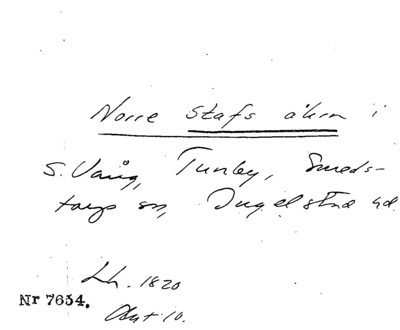 Norre Stafs åkrn i
S. Vång, Tunby, Smeds-
torps sn, Ingelstad hd
Lh. 1820
Nr 7634.
Akt 10.